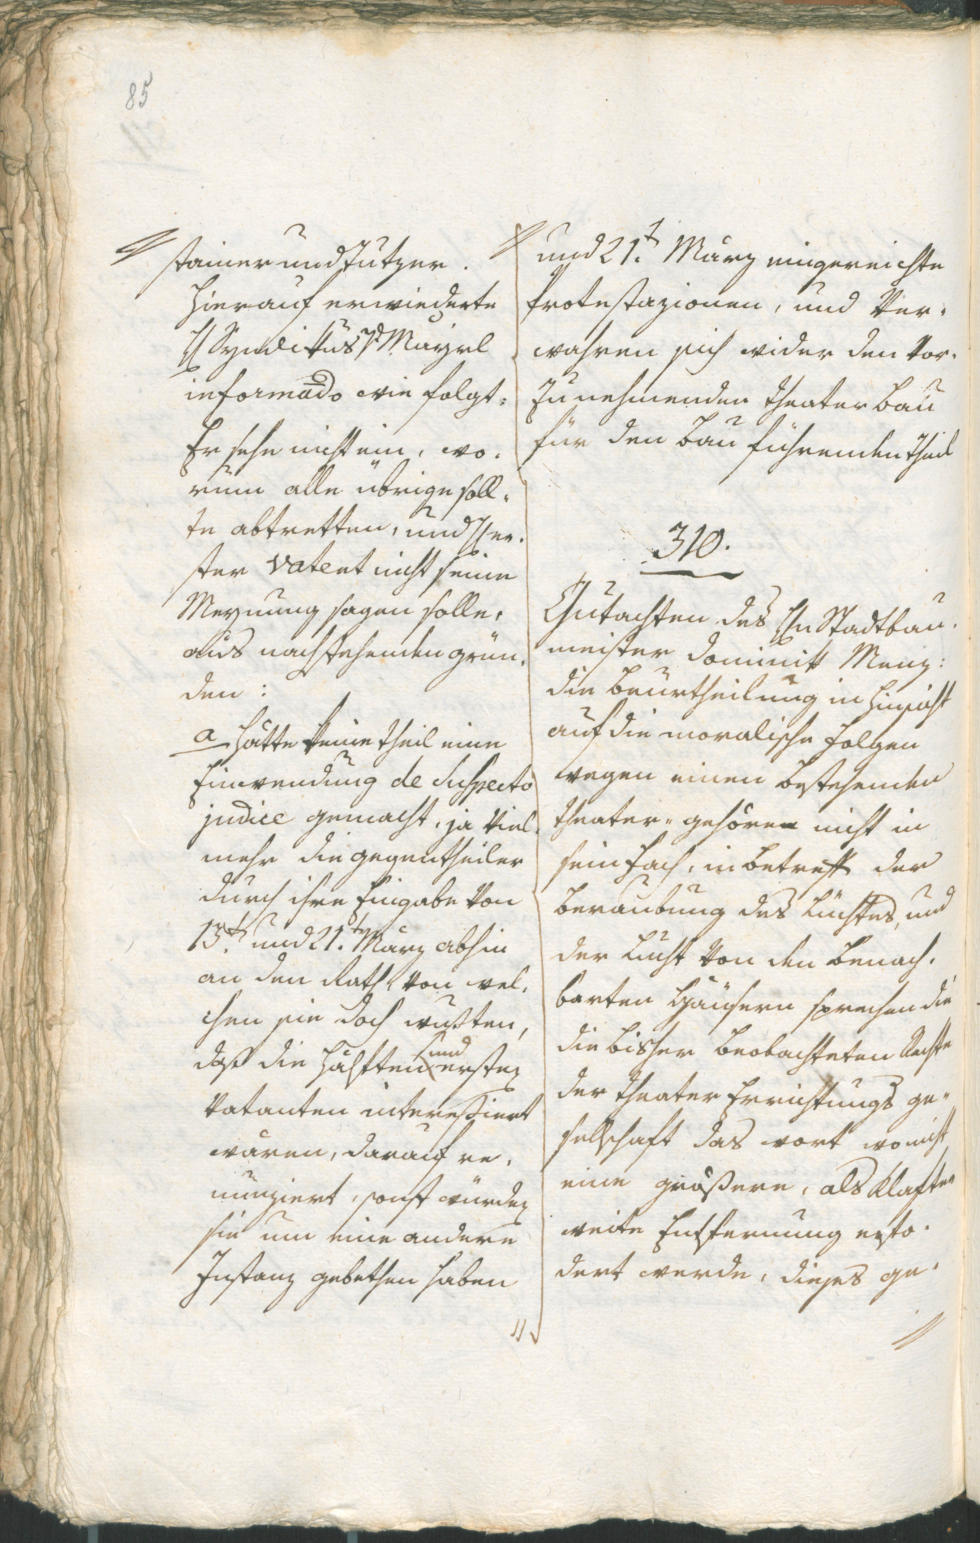 85
stainer und Tutzer.
Hierauf erwiederte
H Syndikus Dr Mayrl
informādo wie folgt:
Er sehe nicht ein, wo-
rum alle übrige soll-
te abtretten, und Her-
ster Vatent nicht seine
Meynung sagen solle,
aus nachstehenden grün-
den:
a hätte keine theil eine
Einwendung de suspecto
judice gemacht, ja viel-
mehr die gegentheiler
durch ihre Eingabe von
13t und 21t März abhin
an den Rath, von wel-
chen sie doch wusten,
daß die Hälfte und erster
Votanten interessiert
wären, darauf re-
nunziert, sonst würden
sie um eine andere
Instanz gebethen haben
und 21t März eingereichte
Protestazionen, und Ver-
wahren sich wider den Vor-
zunehmenden theater bau
für den bau führenden theil
310.
Gutachten des Hn Stadtbau-
meister Dominik Menz:
die beurtheilung in Hinsicht
auf die moralische folgen
wegen einen bestehenden
theater gehören nicht in
sein fach, in betreff der
beraubung des Lichtes, und
der Luft von den benach-
barten Häusern sprechen die
die bisher beobachteten Rechte
der theater Errichtungs ge-
sellschaft das wort wo nicht
eine größere, als Klafter
weite Entfernung erfo-
dert werde, dieses ge-